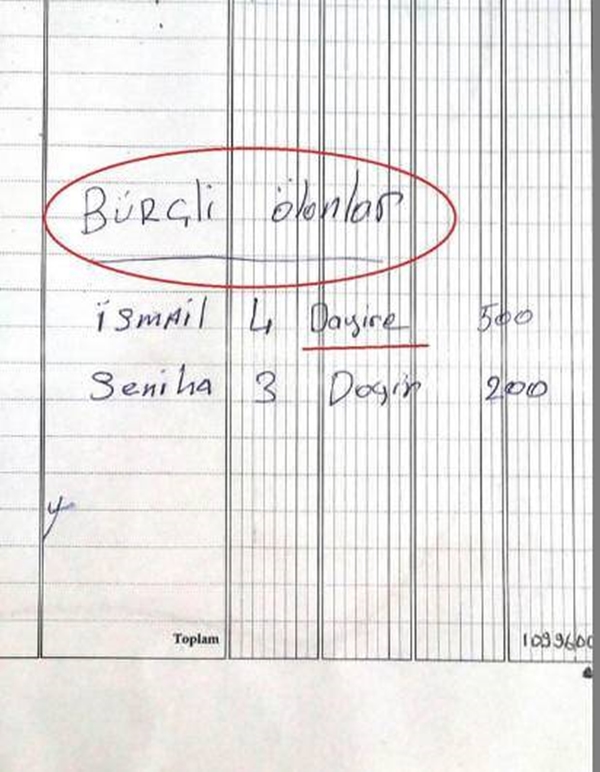 BÜRÇli ölonlar
İSMAİL 4 Dayire 500
Seniha 3 Doyir 200
Toplam